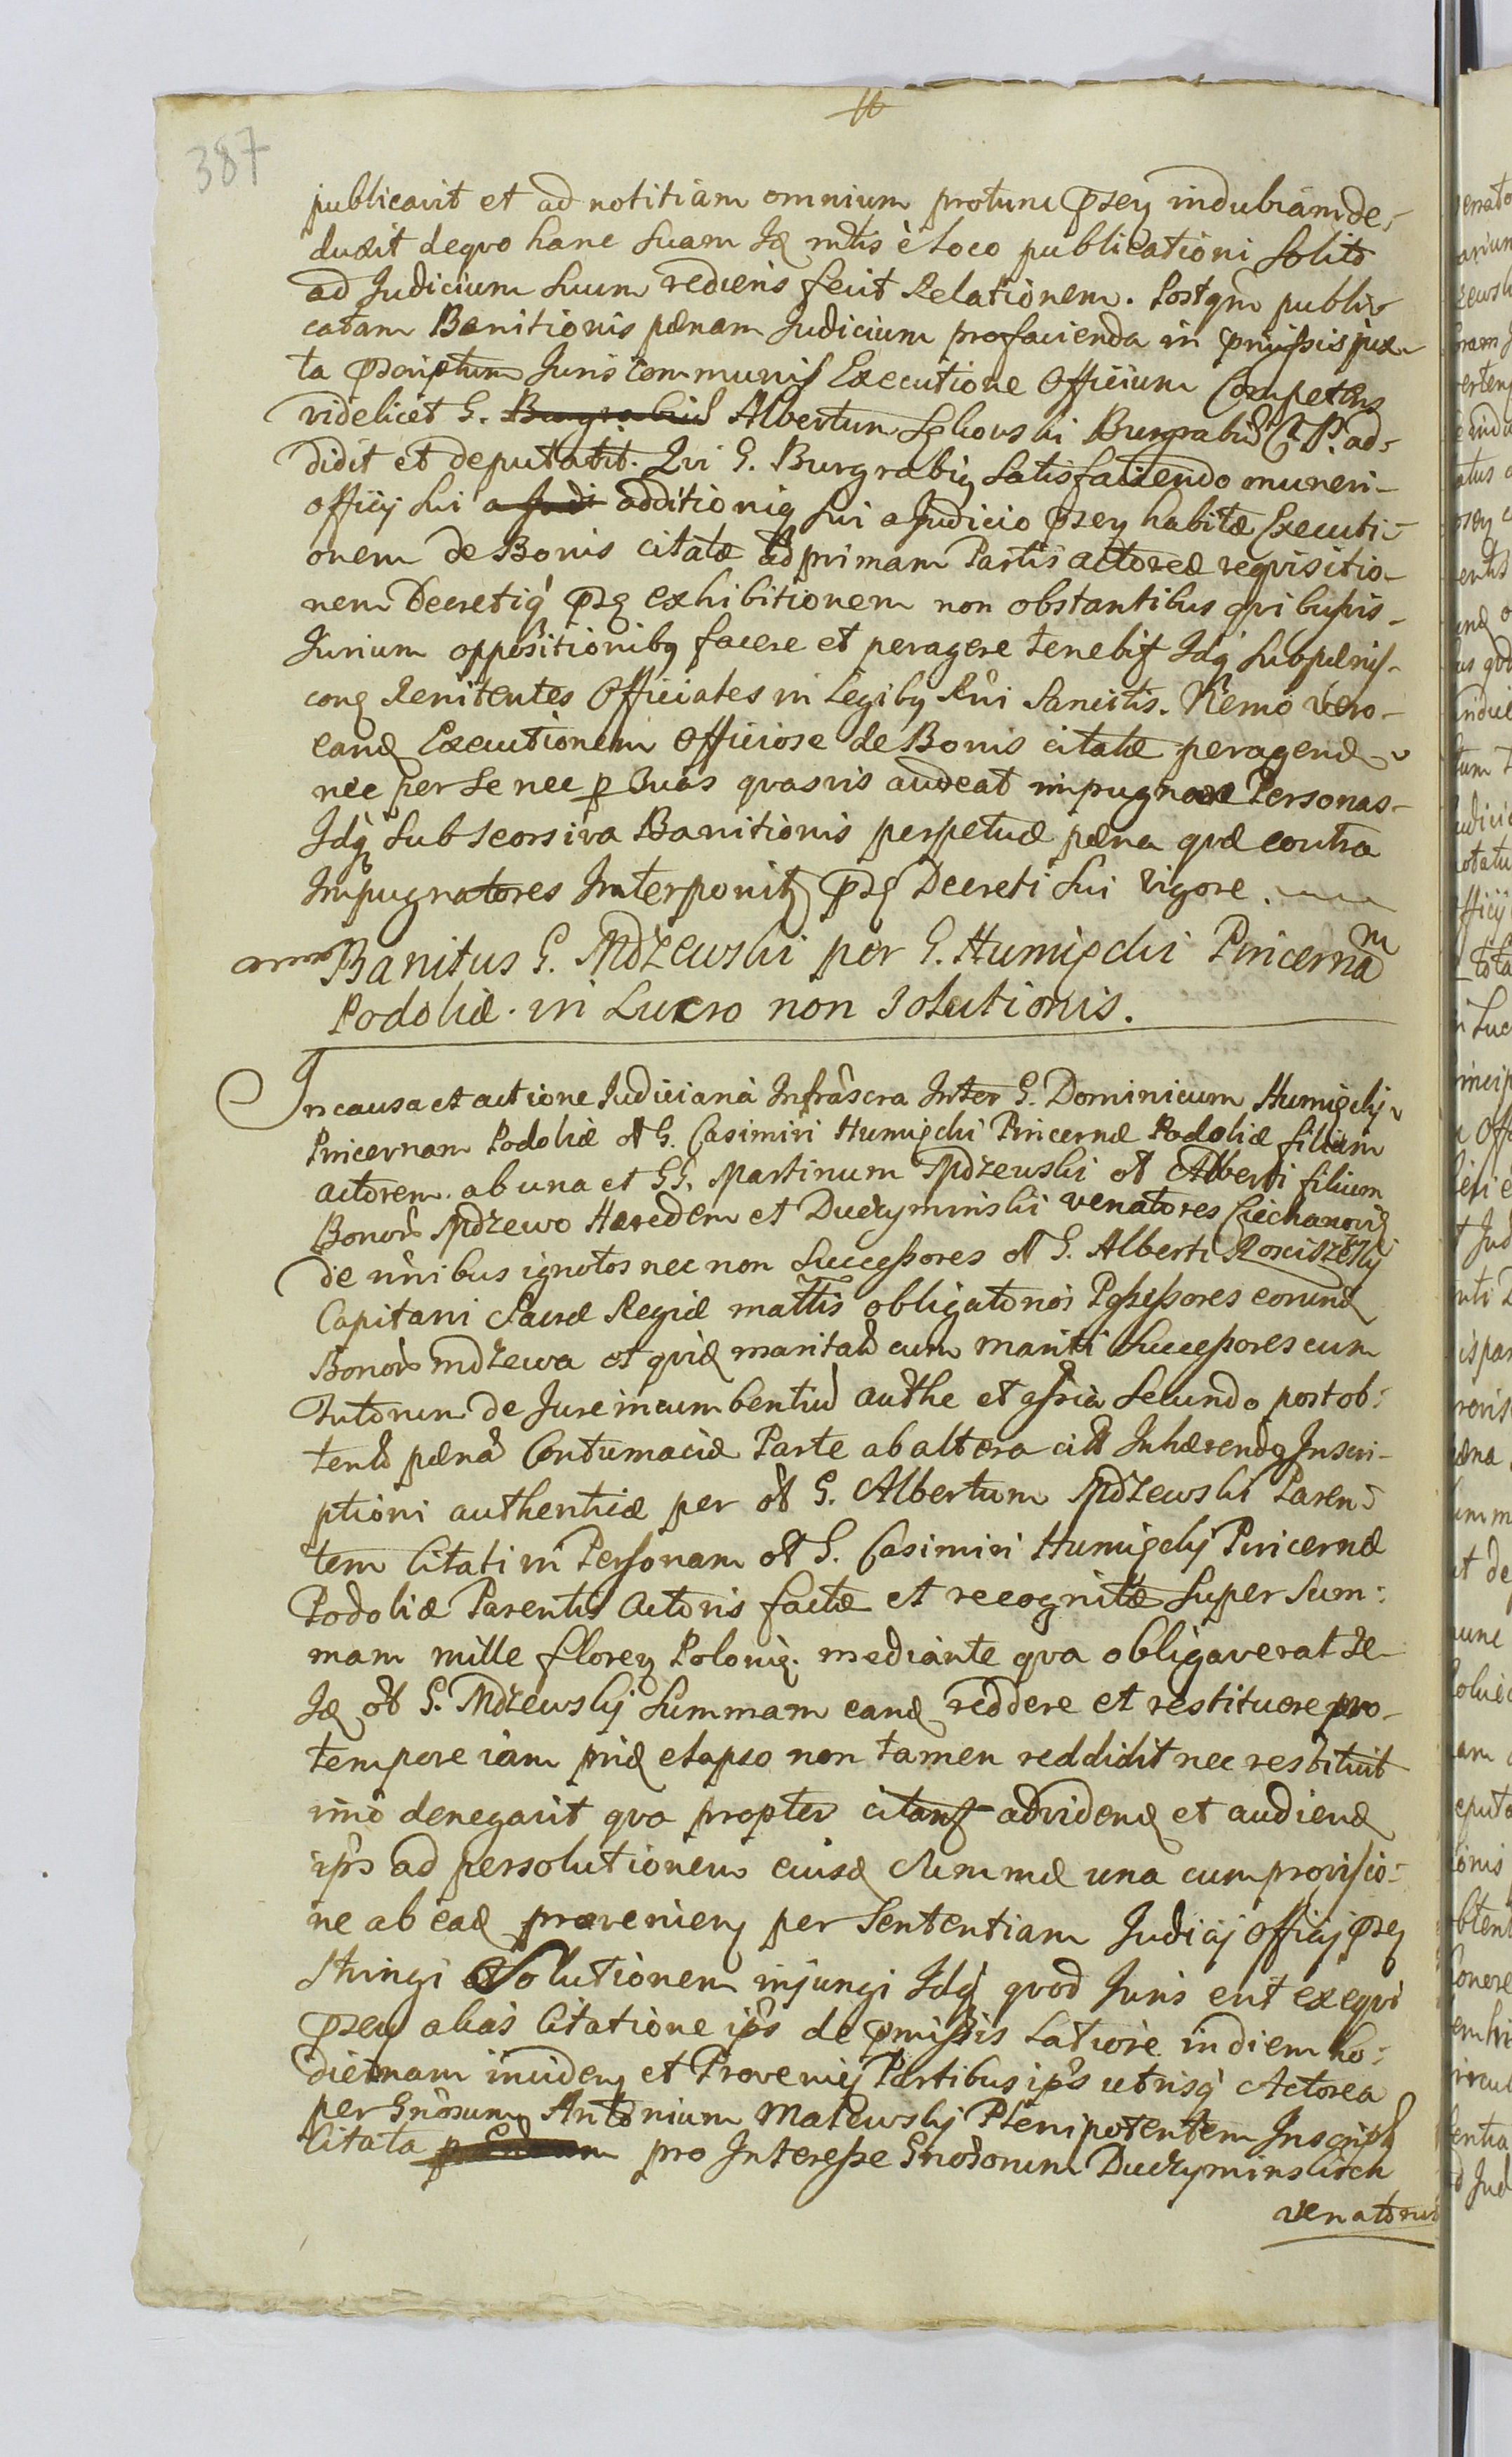 387
publicavit et ad notitiam omnium protunc pꝛsen indubiam de-
duxit de qvo hanc suam Id. mtis è loco publicationi solito
ad Judicium suum rediens fecit Relationem. Postqm publi-
catam Banitionis pænam Judicium pro facienda in pmissis jux-
ta pscriptum Juris communis Executione Officium Competens
videlicet G. Albertum Burgrabiu C. P. ad-
didit et deputavit. Qvi G. Burgrabig satisfaciendo muneri
officij sui additioniq sui a Judicio psen habitæ Executi-
onem de Bonis citatæ ad primam Partis actoreæ reqvisitio-
nem Decretiq psn exhibitionem non obstantibus qvibusvis
Jurium oppositionibq facere et peragere tenebit Idq sub pænis
conq Renitentes Officiales in Legibq Rni Sancitis. Nemo vero
eand Executionem officiose de Bonis citatæ peragend
nec per se nec p suas qvasvis audeat impugnare Personas
Idq sub seorsiva Banitionis perpetuæ pæna qvæ contra
Impugnatores Interponit psn Decreti sui vigore.
Banitus G. Mdzewski per G. Humięcki Pincernam
Podoliæ in Lucro non solutionis.
In causa et actione Judiciaria Infrascra Inter G. Dominicum Humięckj
Pincernam Podoliæ ol G. Casimiri Humięcki Pincernæ Podoliæ filium
actorem ab una et GG. Martinum Mdzewski ol Alberti filium
Bonor Mdzewo Hæredem et Duczyminski venatores Ciechanovien
de nnibus ignotos nec non Successores ol G. Alberti Rosciszewskj
Capitani Sacræ Regiæ mattis obligatorios Possessores eorund
Bonor Mdzewa et qvid maritat cum mariti Successores cum
Tutorum de Jure incumbentiu authe et assria secundo post ob-
tent pæna Contumaciæ Parte ab altera citt Inhærendq Inscri-
ptioni authenticæ per ol G. Albertum Mdzewski Paren-
tem Citati in Personam ol G. Casimiri Humięckj Pincernæ
Podoliæ Parentis actoris factæ et recognitæ super sum-
mam mille floren Polonic. mediante qva obligaverat se
Id ol G. Mdzewskj summam eand reddere et restituere pro
tempore iam prid elapso non tamen reddidit nec restituit
imo denegavit qva propter citant ad vidend et audiend
ips ad persolutionem eiusd summæ una cum provisio-
ne ab ead provenien per Sententiam Judicij officij psen
stringi Solutionem injungi Idq qvod Juris erit exeqvi
psen alias Citatione ips de pmissis latiore in diem ho-
diernam inciden et Provenien Partibus ips utrisq Actorea
per Gnosum Antonium Malewskj Plenipotentem Inscript
Citata pro Interesse Gnosorum Duczyminskich
venatorum